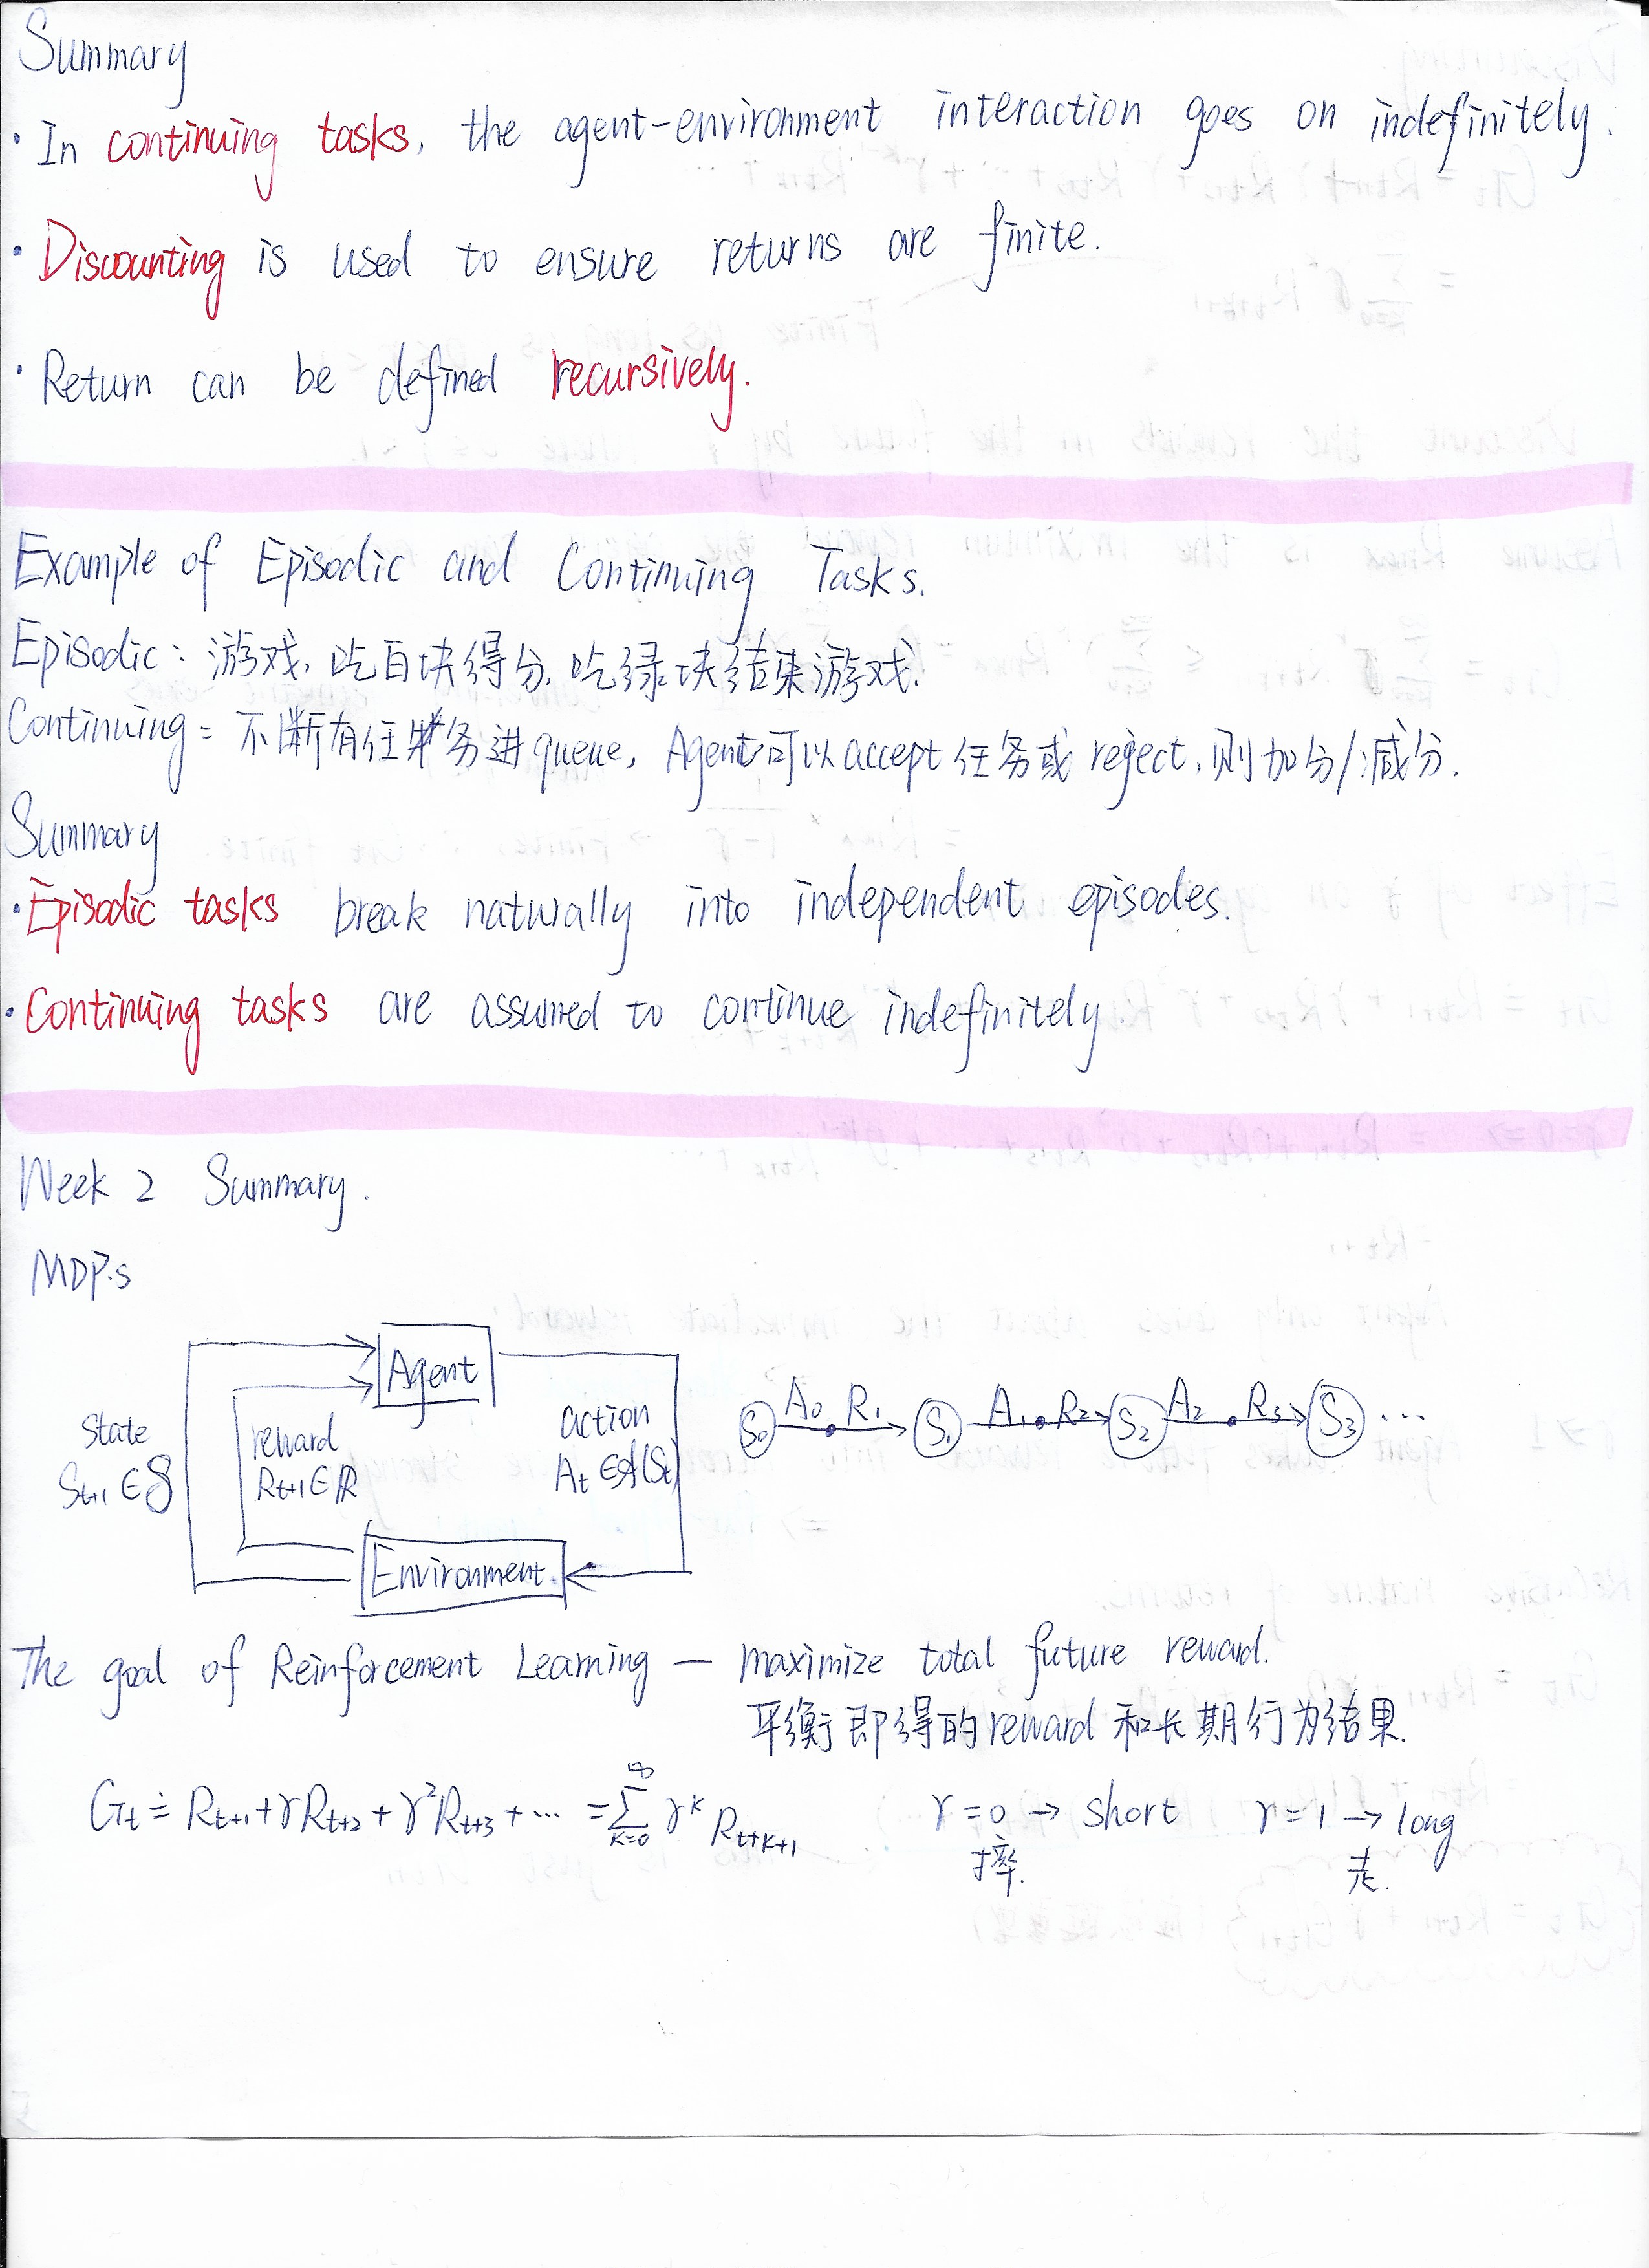 Summary
· In continuing tasks, the agent-environment interaction goes on indefinitely.
· Discounting is used to ensure returns are finite.
· Return can be defined recursively.
Example of Episodic and Continuing Tasks.
Episodic: 游戏, 吃白块得分, 吃绿块结束游戏.
Continuing = 不断有任务进queue, Agent可以accept任务或reject, 则加分/减分.
Summary
· Episodic tasks break naturally into independent episodes.
· Continuing tasks are assumed to continue indefinitely.
Week 2 Summary.
MDPs
Agent
state
S_{t+1} ∈ 𝒮
reward
R_{t+1} ∈ ℝ
action
A_t ∈ 𝒜(S_t)
Environment
S_0 A_0 R_1 S_1 A_1 R_2 S_2 A_2 R_3 S_3 ...
The goal of Reinforcement Learning — maximize total future reward.
平衡即得的reward和长期行为结果.
G_t ≐ R_{t+1} + γR_{t+2} + γ²R_{t+3} + ... = Σ_{k=0}^{∞} γ^k R_{t+k+1} γ=0 → short γ=1 → long
摔. 走.